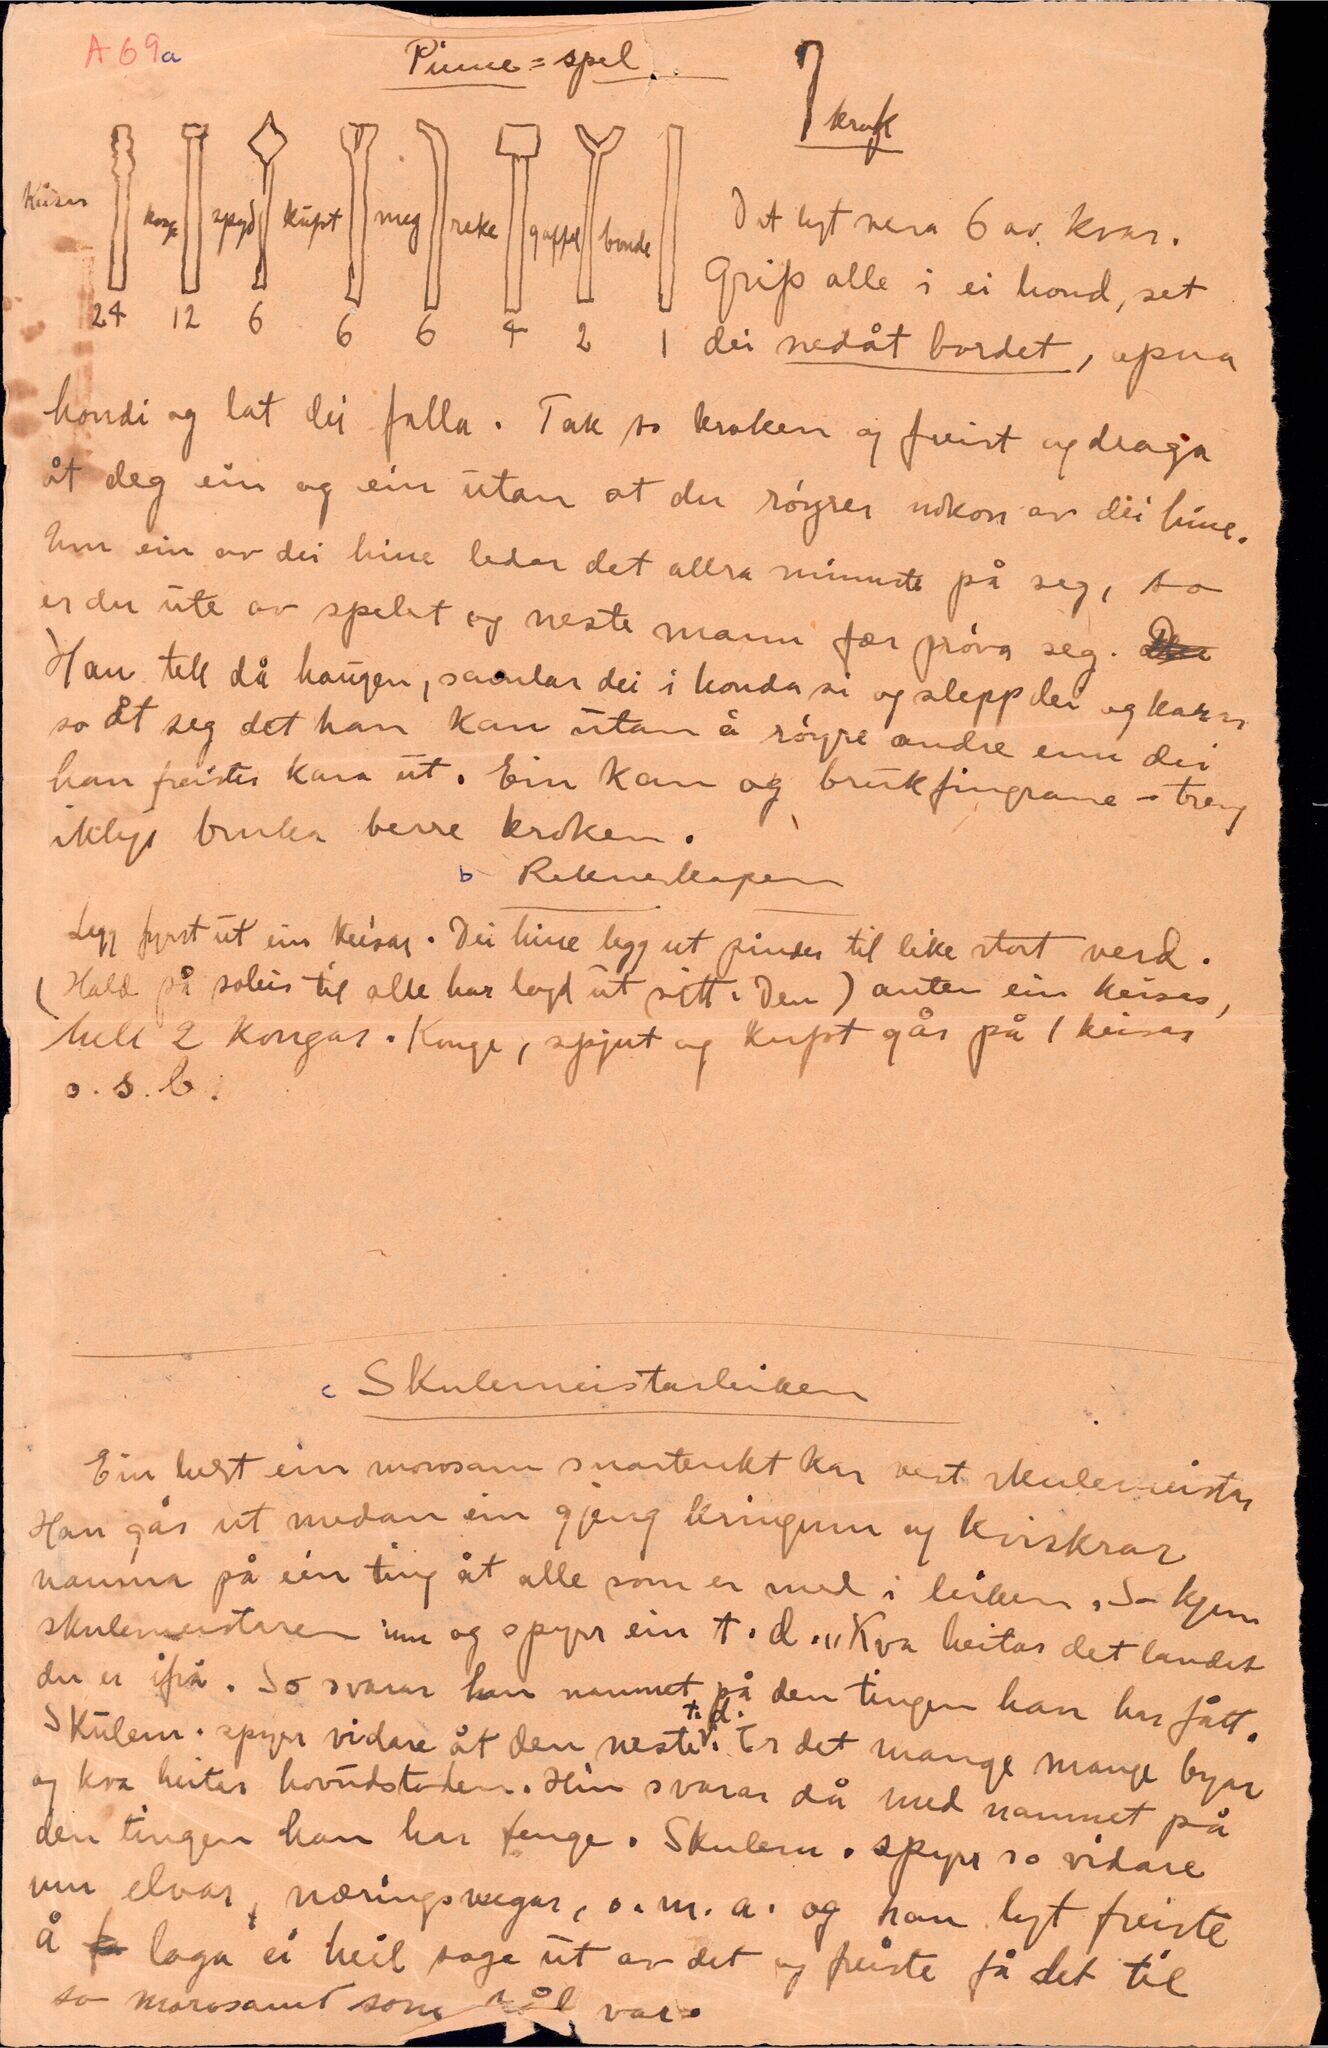 A 69a
Pinne=spel
krok
Keisar konge spyd kufst meg reke gaffel bonde
24 12 6 6 6 4 2 1
Det lyt vera 6 av kvar.
Grip alle i ei hond, set
dei nedåt bordet, opna
hondi og lat dei falla. Tak so kroken og freist og draga
åt deg ein og ein utan at du røyrer nokon av dei hine.
Um ein av dei hine ledar det allra minnste på seg, so
er du ute av spelet og neste mann fær prøva seg.
Han tek då haugen, samlar dei i honda si og slepp dei og karar
so åt seg det han kan utan å røyre andre enn dei
han freistes kara ut. Ein kan og bruk fingrane - treng
ikkje bruka berre kroken.
b Rekneskapen
Legg fyrst ut ein keisar. Dei hine legg ut pinder til like stort verd.
(Hald på soleis til alle har lagd ut sitt. Den) anten ein keisar,
hell 2 kongar. Konge, spjut og kufst går på 1 keisar
o. s. b.
c Skulemeistarleiken
Ein helst ein morosam snartenkt kar vert skulemeistar
Han går ut medan ein gjeng kringum og kviskrar
namna på ein ting åt alle som er med i leiken. So kjem
skulemeistaren inn og spyrr ein t. d. „Kva heitar det landet
du er ifrå. So svarar han namnet på den tingen han har fått.
Skulem. spyrr vidare åt den neste t. d. Er det mange mange byar
og kva heiter hovudstaden. Hin svarar då med namnet på
den tingen han har fenge. Skulem. spyrr so vidare
um elvar, næringsvegar, o. m. a. og han lyt freiste
å laga ei heil soge ut av det og freiste få det til
so morosamt som råd var.